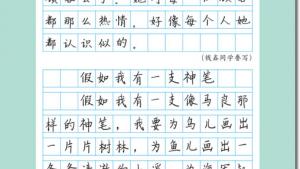 都那么热情，好像每个人她
都认识似的。
（钱磊同学誊写）
假如我有一支神笔
假如我有一支像马良那
样的神笔，我要为鸟儿画出
一片片树林，为鱼儿画出一